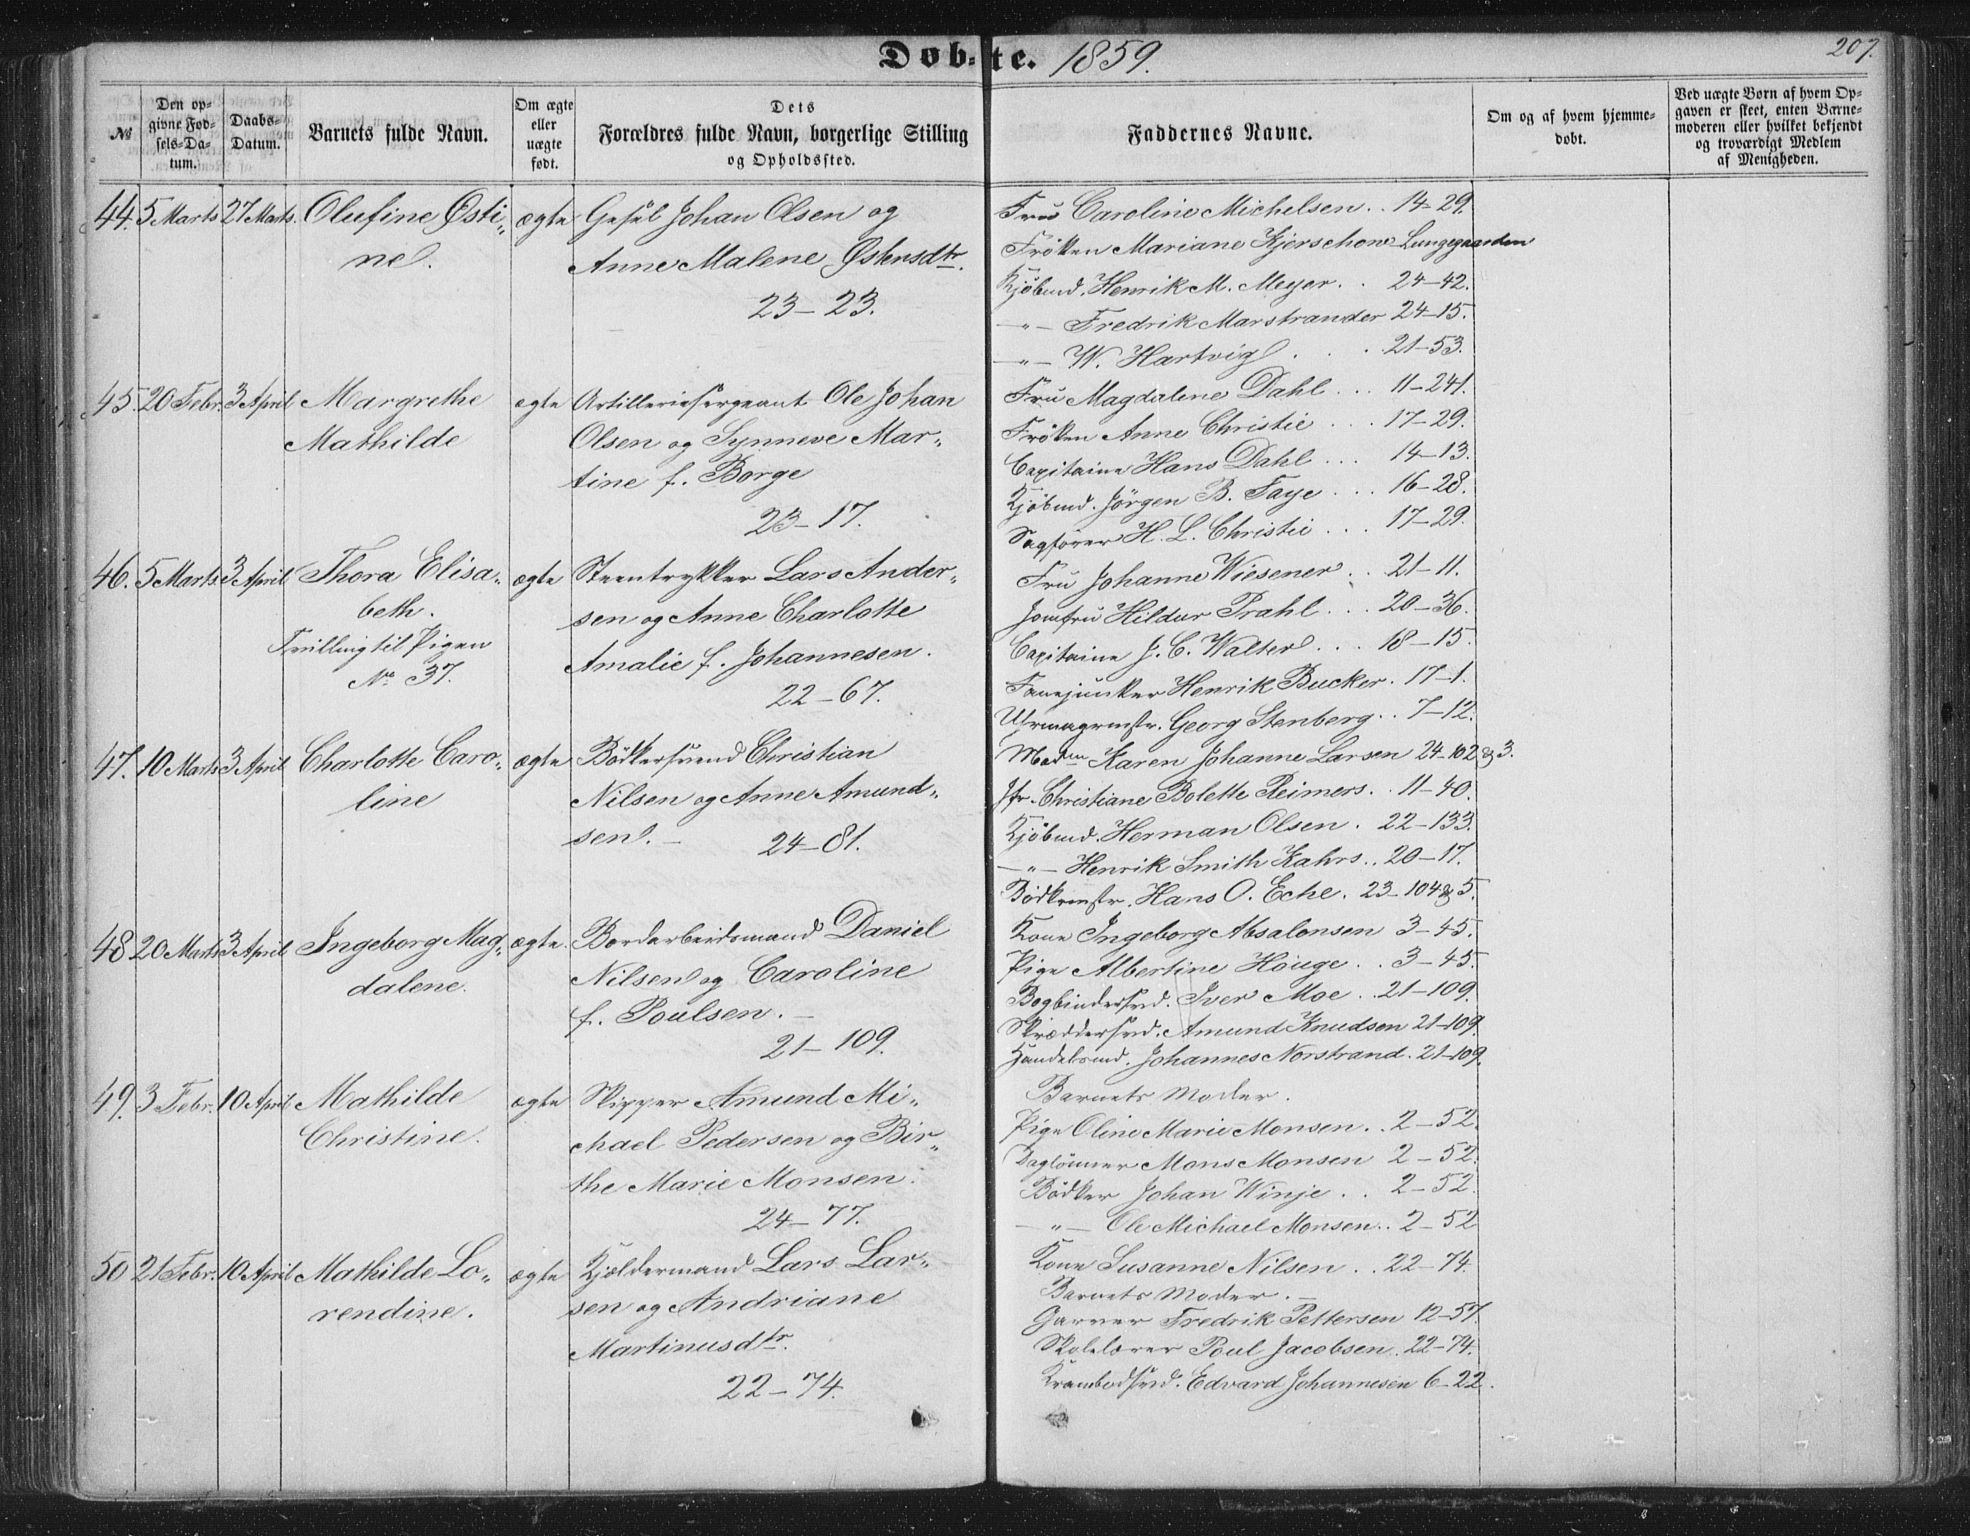 Døb-te. 1859.
207.
№
Den op-
givne Fød-
sels-Da-
tum.
Daabs-
Datum.
Barnets fulde Navn.
Om ægte
eller
uægte
født.
Dets
Forældres fulde Navn, borgerlige Stilling
og Opholdssted.
Faddernes Navne.
Om og af hvem hjemme-
døbt.
Ved uægte Børn af hvem Op-
gaven er skeet, enten Barne-
moderen eller hvilket bekjendt
og troværdigt Medlem
af Menigheden.
44. 5 Marts 27 Marts. Olufine Østi- ægte Gesel Johan Olsen og
ne.
Anne Malene Østensdtr.
23-23.
Fru Caroline Michelsen. . 14-29.
Frøken Mariane Kjerschow Lungegaarden
Kjøbmd. Henrik M. Meyer. . 24-42.
-"- Fredrik Marstrander 24-15.
-"- W. Hartvig . . . 21-53.
45. 20 Febr. 3 April Margrethe ægte Artilleriesergeant Ole Johan
Mathilde
Olsen og Synneve Mar-
tine f. Borge
23-17.
Fru Magdalene Dahl . . . 11-241.
Frøken Anne Christie . . . 17-29.
Capitaine Hans Dahl . . . 14-13.
Kjøbmd. Jörgen B. Faye . . . 16-28.
Sagfører H. L. Christie . . . 17-29.
46. 5 Marts. 3 April Thora Elisa- ægte Steentrykker Lars Ander-
beth.
Tvilling til Pigen
No 37.
sen og Anne Charlotte
Amalie f. Johannesen.
22-67.
Fru Johanne Wiesener. . 21-11.
Jomfru Hildur Prahl . . . 20-36.
Capitaine J. C. Walter . . . 18-15.
Fanejunker Henrik Bucker. 17-1.
Uhrmagrmstr. Georg Stenberg. . 7-12.
47. 10 Marts 3 April Charlotte Caro- ægte Bödkersvend Christian
line
Nilsen og Anne Amund-
sen. -
24-81.
Madm Karen Johanne Larsen 24-102 & 3.
Jfr. Christiane Bolette Reimers. . 11-40.
Kjøbmd. Herman Olsen . 22-133.
-"- Henrik Smith Kahrs. . 20-17.
Bödkrmstr. Hans O. Eche. 23-104 & 5.
48 20 Marts 3 April Ingeborg Mag- ægte. Bordarbeidsmand Daniel
dalene.
Nilsen og Caroline
f. Poulsen. -
21-109.
Kone Ingeborg Absalonsen 3-45.
Pige Albertine Houge . . 3-45.
Bogbindersvd. Iver Moe. . 21-109.
Skræddersvd. Amund Knudsen 21-109.
Handelsmd. Johannes Norstrand. 21-109.
49. 3 Febr. 10 April Mathilde ægte Skipper Amund Mi-
Christine.
chael Pedersen og Bir-
the Marie Monsen.
24-77.
Barnets Moder.
Pige Oline Marie Monsen. . 2-52.
Daglönner Mons Monsen 2-52.
Bödker Johan Winje . . 2-52.
-"- Ole Michael Monsen. . 2-52
50 21 Febr. 10 April Mathilde Lo- ægte Kjældermand Lars Lar-
rendine.
sen og Andriane
Martinusdtr.
22-74.
Kone Susanne Nilsen . . 22-74.
Barnets Moder. -
Garver Fredrik Pettersen 12-57.
Skolelærer Poul Jacobsen. 22-74.
Krambodsvd. Edvard Johannesen 6-22.